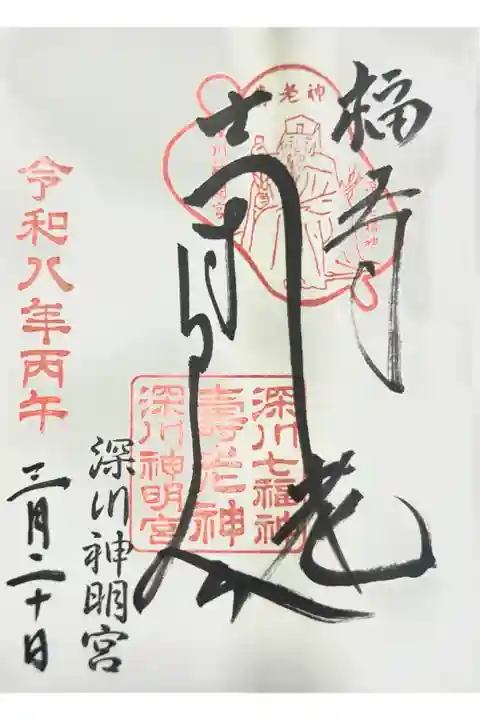 老神
福寿
老
深川七福神
壽老神
深川神明宮
深川神明宮
令和八年丙午
三月二十日